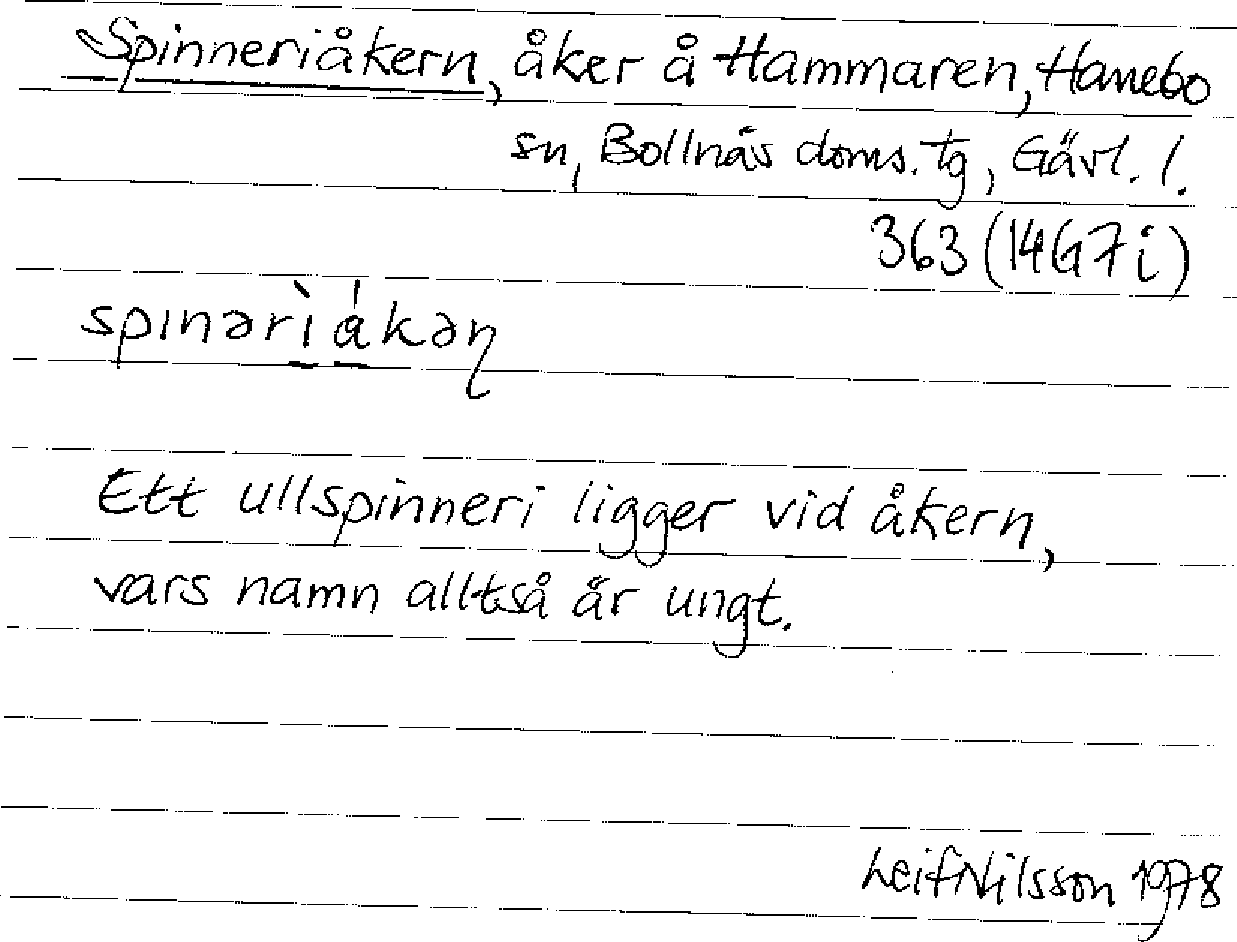 Spinneriåkern, åker å Hammaren, Hanebo
sn, Bollnäs doms. tg, Gävl. l.
363 (14G7i)
spinərìákəɳ
Ett ullspinneri ligger vid åkern,
vars namn alltså är ungt.
Leif Nilsson 1978